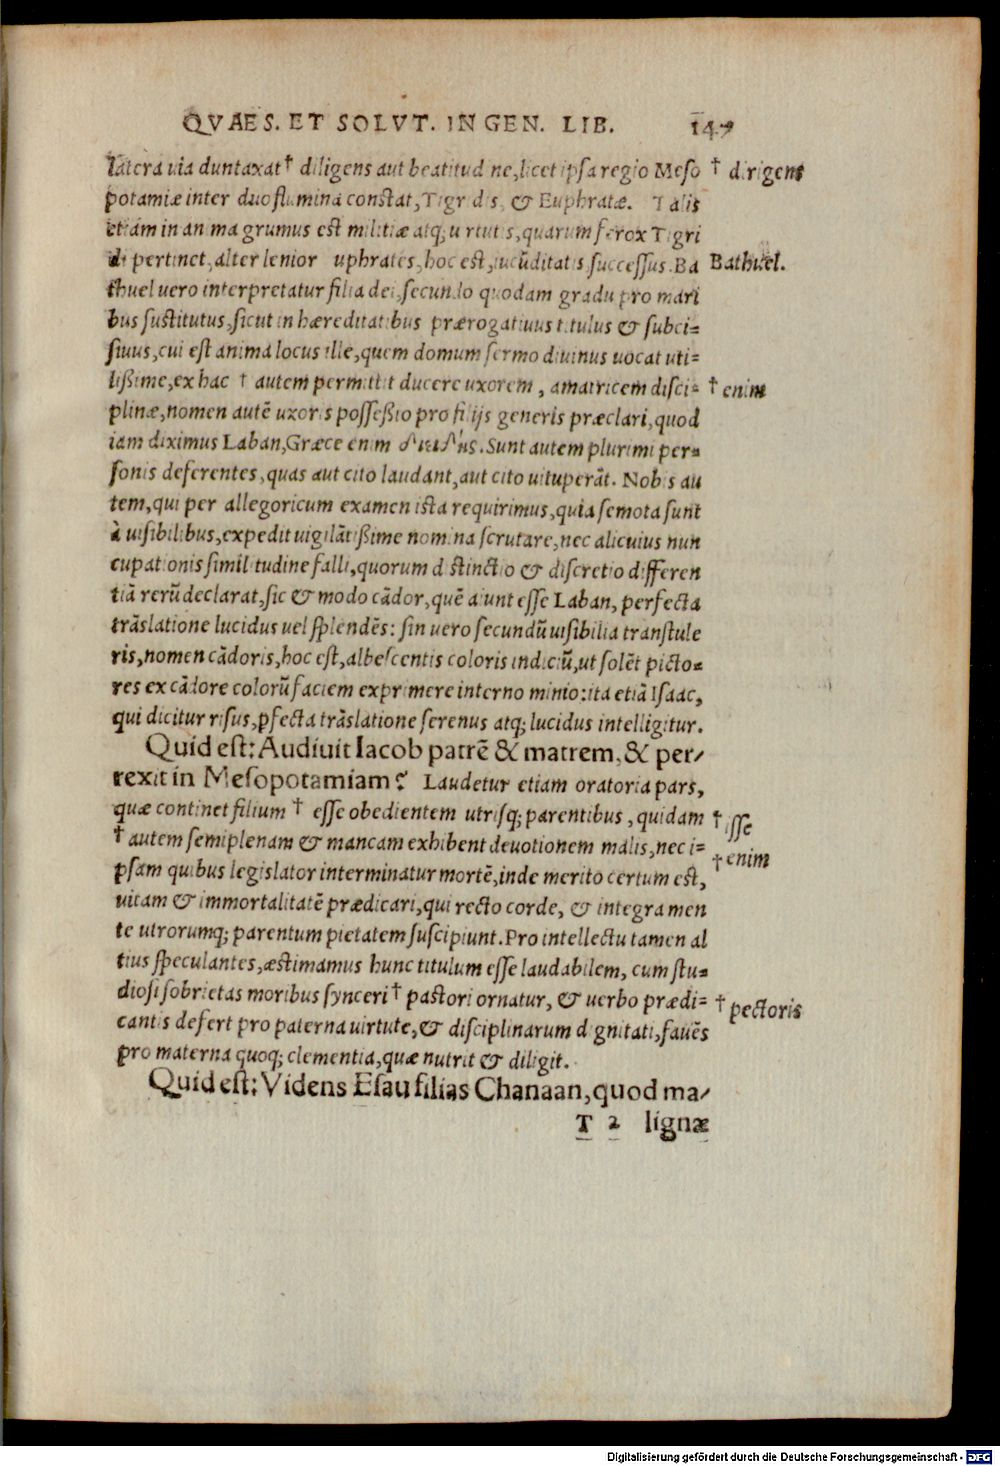 QVAES. ET SOLVT. IN GEN. LIB. 147
latera uia duntaxat † diligens aut beatitudine, licet ipsa regio Meso † dirigens
potamiæ inter duo flumina constat, Tigridis, & Euphratæ. Talis
etiam in anima grumus est militiæ atq; uirtutis, quarum ferox Tigri
di pertinet, alter lenior uphrates, hoc est, iucũditatis successus. Ba Bathuel.
thuel uero interpretatur filia dei, secundo quodam gradu pro mari
bus sustitutus, sicut in hæreditatibus prærogatiuus titulus & subci=
siuus, cui est anima locus ille, quem domum sermo diuinus uocat uti=
lißime, ex hac † autem permittit ducere uxorem, amatricem disci= † enim
plinæ, nomen autẽ uxoris posseßio pro filijs generis præclari, quod
iam diximus Laban, Græce enim Sunt autem plurimi per=
sonis deferentes, quas aut cito laudant, aut cito uituperãt. Nobis au
tem, qui per allegoricum examen ista requirimus, quia semota sunt
à uisibilibus, expedit uigilãtißime nomina scrutare, nec alicuius nun
cupationis similitudine falli, quorum distinctio & discretio differen
tiã rerũ declarat, sic & modo cãdor, quẽ aiunt esse Laban, perfecta
trãslatione lucidus uel splendẽs: sin uero secundũ uisibilia transtule
ris, nomen cãdoris, hoc est, albescentis coloris indiciũ, ut solẽt picto=
res ex cãdore colorũ faciem exprimere interno minio: ita etiã Isaac,
qui dicitur risus, ꝑfecta trãslatione serenus atq; lucidus intelligitur.
Quid est: Audiuit Iacob patrẽ & matrem, & per/
rexit in Mesopotamiam? Laudetur etiam oratoria pars,
quæ continet filium † esse obedientem utrisq; parentibus, quidam † isse
† autem semiplenam & mancam exhibent deuotionem malis, nec i= † enim
psam quibus legislator interminatur mortẽ, inde merito certum est,
uitam & immortalitatẽ prædicari, qui recto corde, & integra men
te utrorumq; parentum pietatem suscipiunt. Pro intellectu tamen al
tius speculantes, æstimamus hunc titulum esse laudabilem, cum stu=
diosi sobrietas moribus synceri † pastori ornatur, & uerbo prædi= † pectoris
cantis defert pro paterna uirtute, & disciplinarum dignitati, fauẽs
pro materna quoq; clementia, quæ nutrit & diligit.
Quid est: Videns Esau filias Chanaan, quod ma/
T 2 lignæ
Digitalisierung gefördert durch die Deutsche Forschungsgemeinschaft - DFG